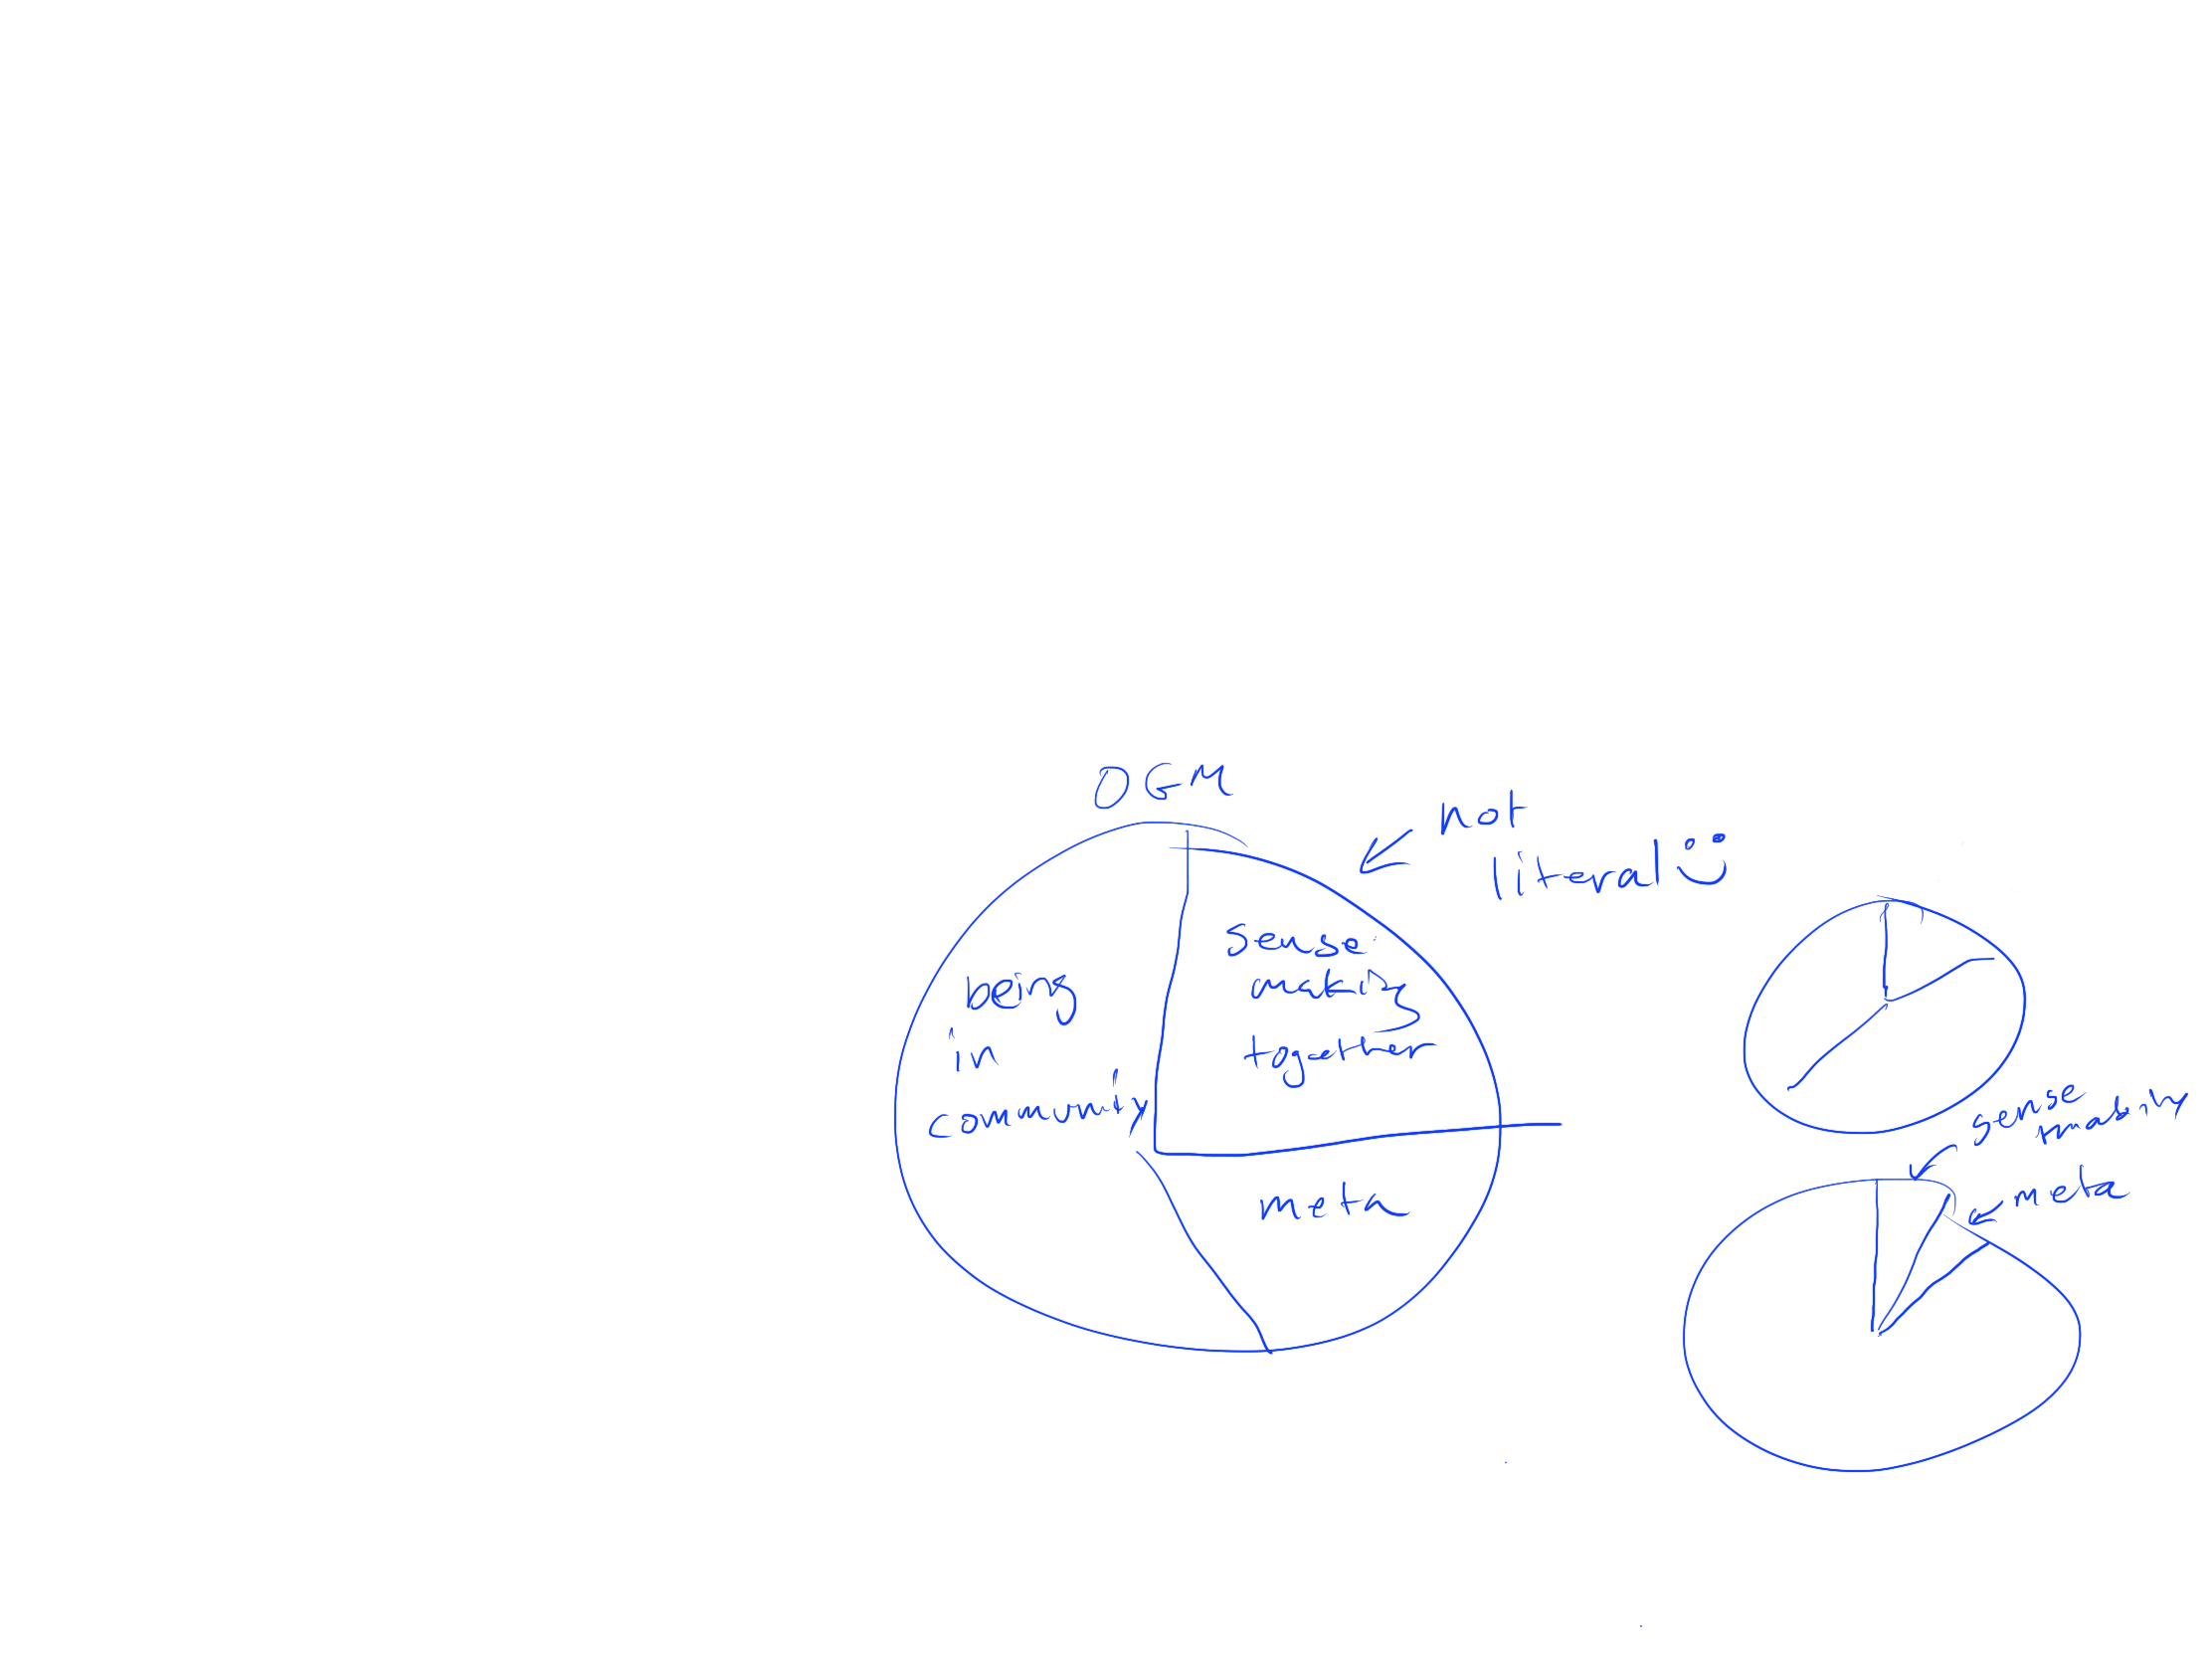 OGM
not
literal
being
in
community
sense
making
together
meta
sense
making
meta